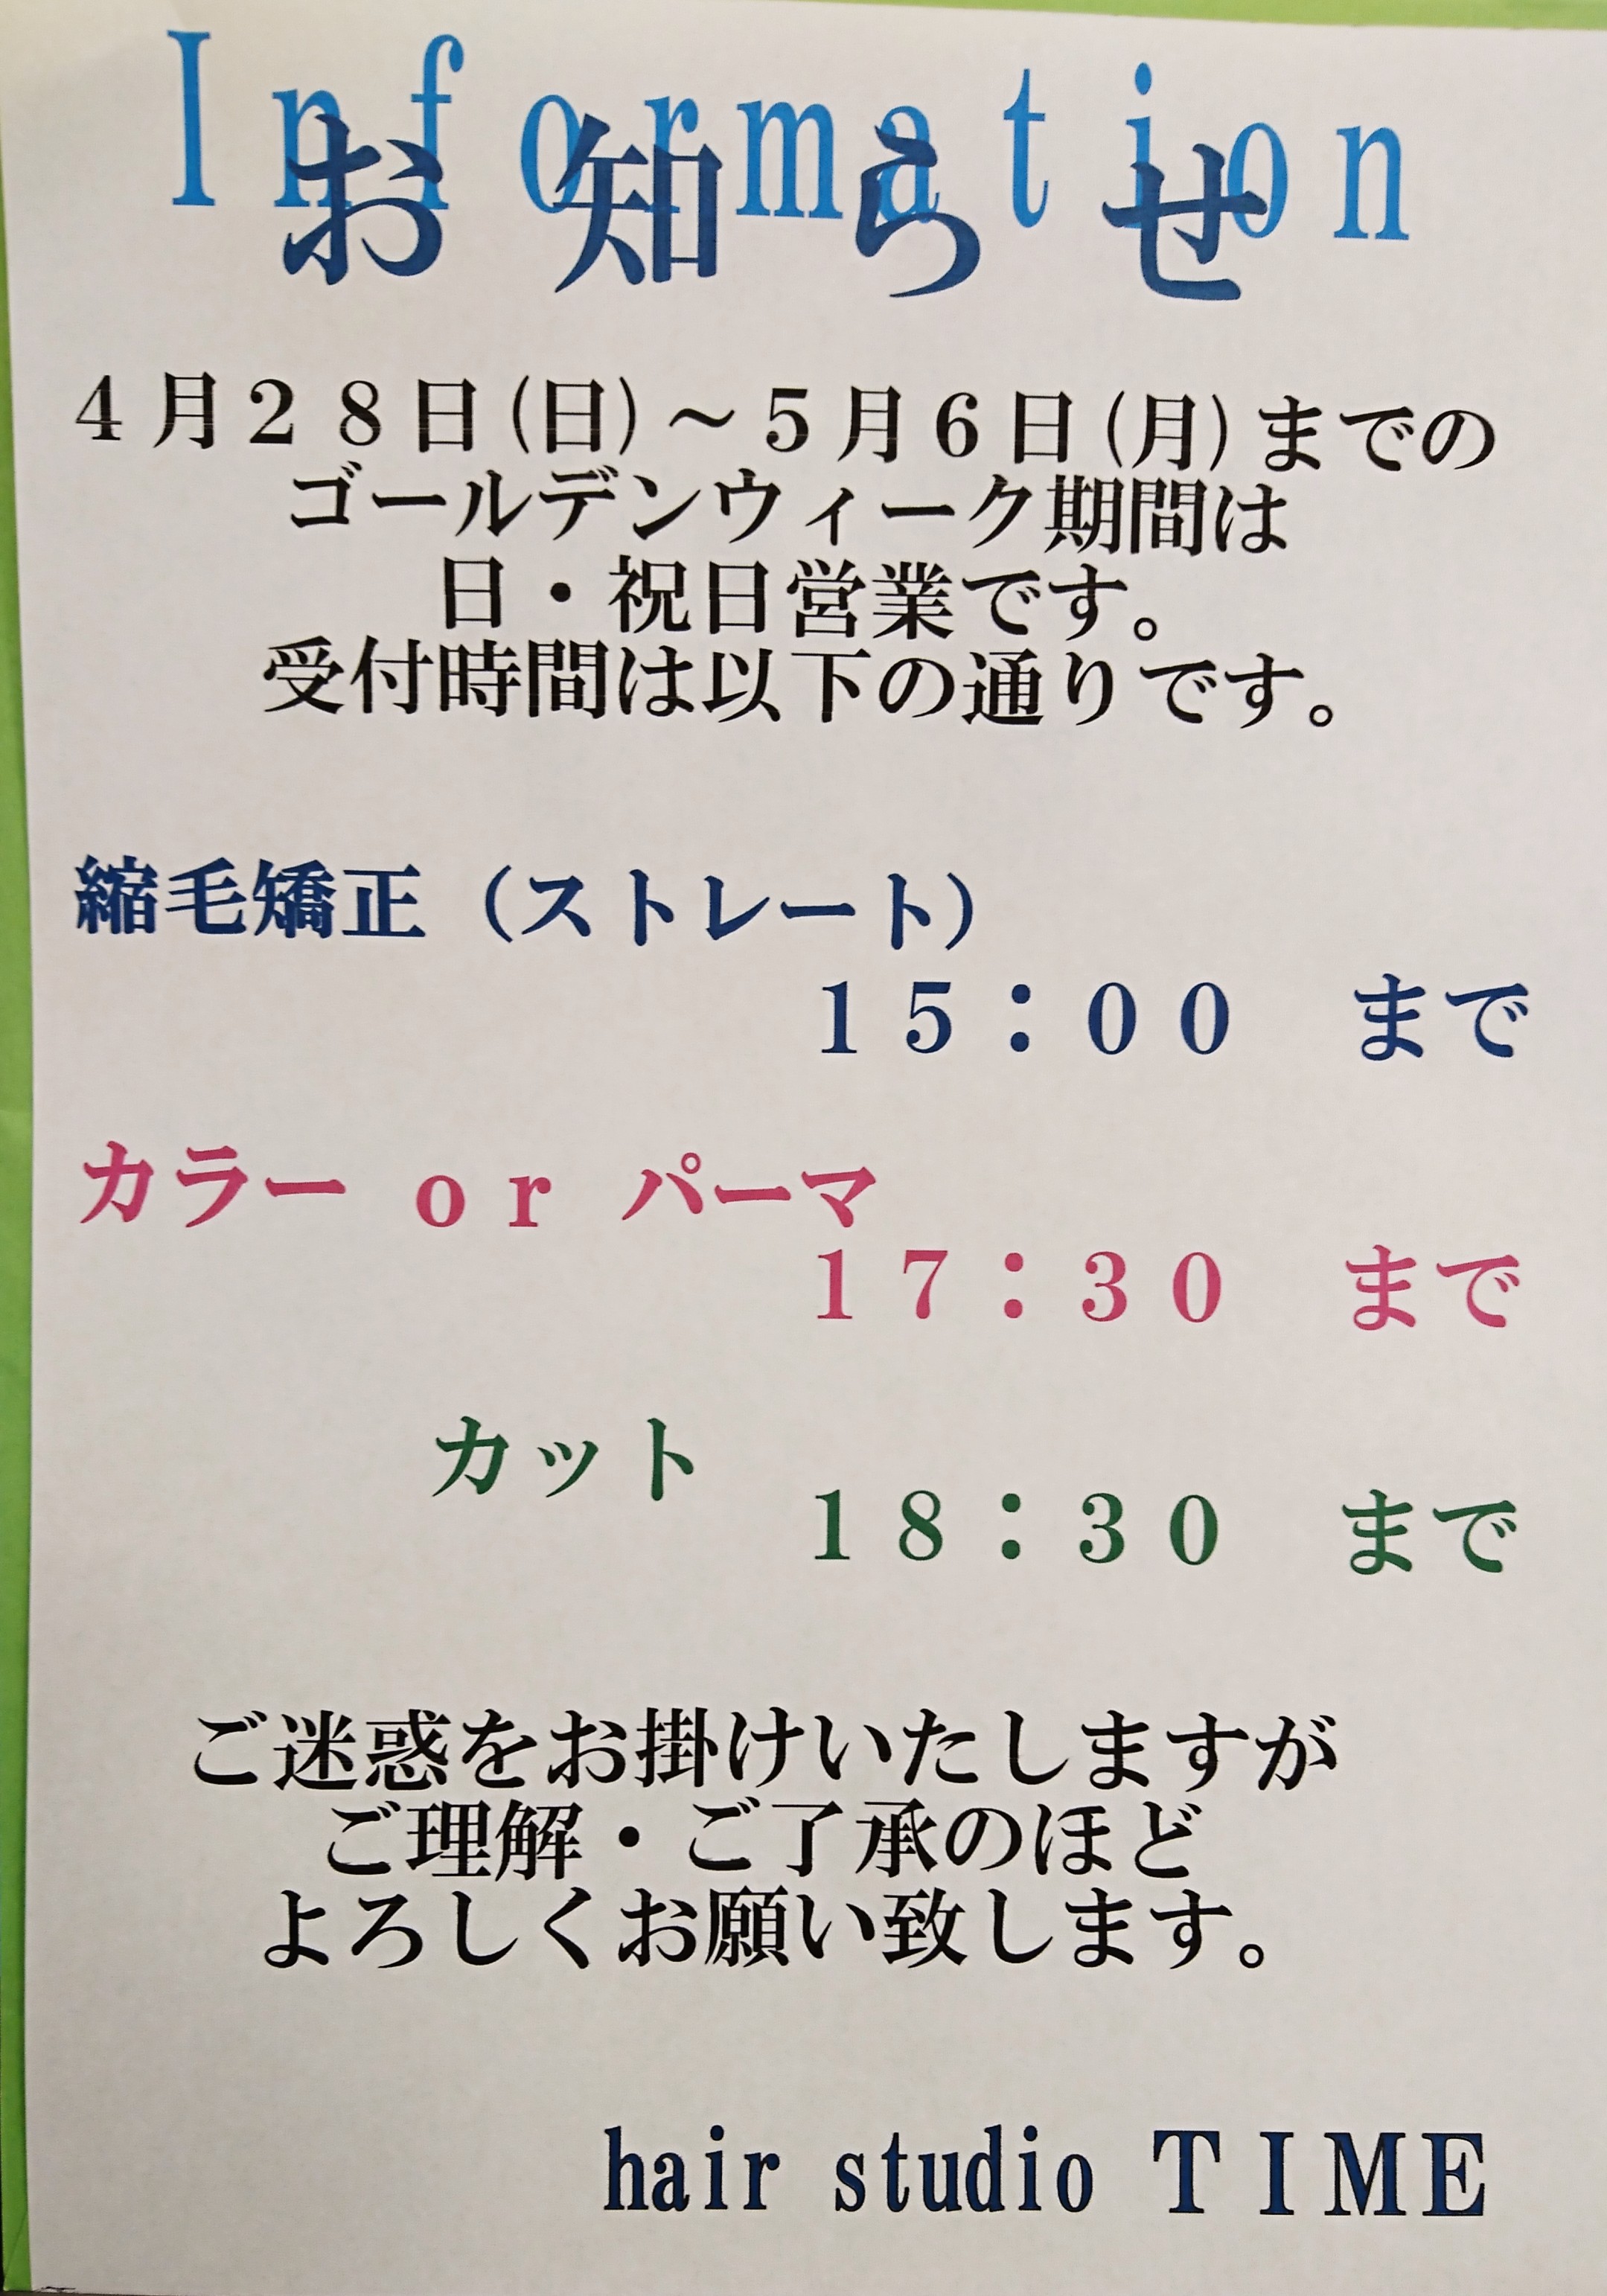 Information
お知らせ
４月２８日(日)～５月６日(月)までの
ゴールデンウィーク期間は
日・祝日営業です。
受付時間は以下の通りです。
縮毛矯正（ストレート）
１５：００　まで
カラー　ｏｒ　パーマ
１７：３０　まで
カット
１８：３０　まで
ご迷惑をお掛けいたしますが
ご理解・ご了承のほど
よろしくお願い致します。
hair studio ＴＩＭＥ